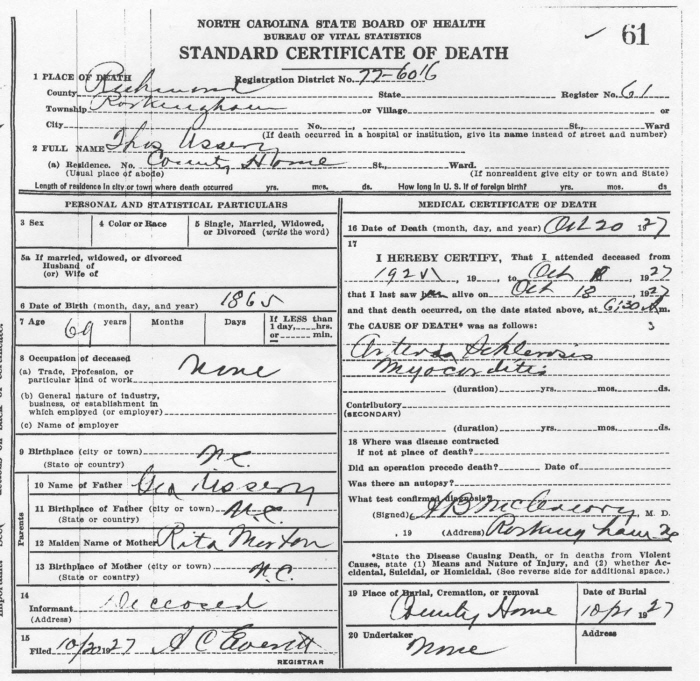 NORTH CAROLINA STATE BOARD OF HEALTH
BUREAU OF VITAL STATISTICS
STANDARD CERTIFICATE OF DEATH
✓ 61
1 PLACE OF DEATH Registration District No. 77-6016
County Richmond State Register No. 61
Township Rockingham or Village or
City No. St., Ward
(If death occurred in a hospital or institution, give its name instead of street and number)
2 FULL NAME Thos Ussery
(a) Residence. No. County Home St., Ward.
(Usual place of abode) (If nonresident give city or town and State)
Length of residence in city or town where death occurred yrs. mos. ds. How long in U. S. if of foreign birth? yrs. mos. ds.
PERSONAL AND STATISTICAL PARTICULARS
3 Sex
4 Color or Race
5 Single, Married, Widowed, or Divorced (write the word)
5a If married, widowed, or divorced
Husband of
(or) Wife of
6 Date of Birth (month, day, and year) 1865
7 Age 69 years Months Days If LESS than 1 day, hrs. or min.
8 Occupation of deceased
(a) Trade, Profession, or particular kind of work None
(b) General nature of industry, business, or establishment in which employed (or employer)
(c) Name of employer
9 Birthplace (city or town) N.C.
(State or country)
Parents
10 Name of Father Geo Ussery
11 Birthplace of Father (city or town) N.C.
(State or country)
12 Maiden Name of Mother Rita Morton
13 Birthplace of Mother (city or town) N.C.
(State or country)
14
Informant Deceased
(Address)
15
Filed 10/20 1927 A C Everett
REGISTRAR
MEDICAL CERTIFICATE OF DEATH
16 Date of Death (month, day, and year) Oct 20 1927
17
I HEREBY CERTIFY, That I attended deceased from
192 , 19 , to Oct 1927
that I last saw alive on Oct 18, 1927
and that death occurred, on the date stated above, at 6:30 A m.
The CAUSE OF DEATH* was as follows:
3
Arterio Schlerosis
Myocarditis
(duration) yrs. mos. ds.
Contributory
(SECONDARY)
(duration) yrs. mos. ds.
18 Where was disease contracted
if not at place of death?
Did an operation precede death? Date of
Was there an autopsy?
What test confirmed diagnosis?
(Signed) M. D.
, 19 (Address) Rockingham NC
*State the Disease Causing Death, or in deaths from Violent Causes, state (1) Means and Nature of Injury, and (2) whether Accidental, Suicidal, or Homicidal. (See reverse side for additional space.)
19 Place of Burial, Cremation, or removal County Home
Date of Burial 10/21 1927
20 Undertaker None
Address